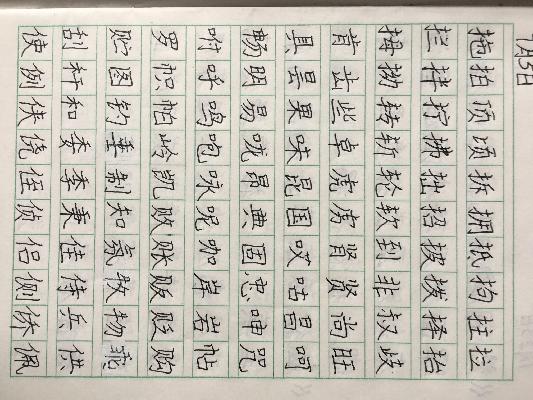 7月5日
拖拍顶顷拆拥抵拘拄拉
拦拌拧拂拙招披拨择抬
拇拗转斩轮软到非叔歧
肯齿些卓虎虏肾贤尚旺
具昙果味昆国哎咕昌呵
畅明易咙昂典固忠呻咒
咐呼鸣咆咏呢咖岸岩帖
罗帜帕岭凯败账贩贬购
贮图钓垂制知氛牧物乖
刮秆和委季秉佳侍岳供
使例侠侥侄侦侣侧侨佩